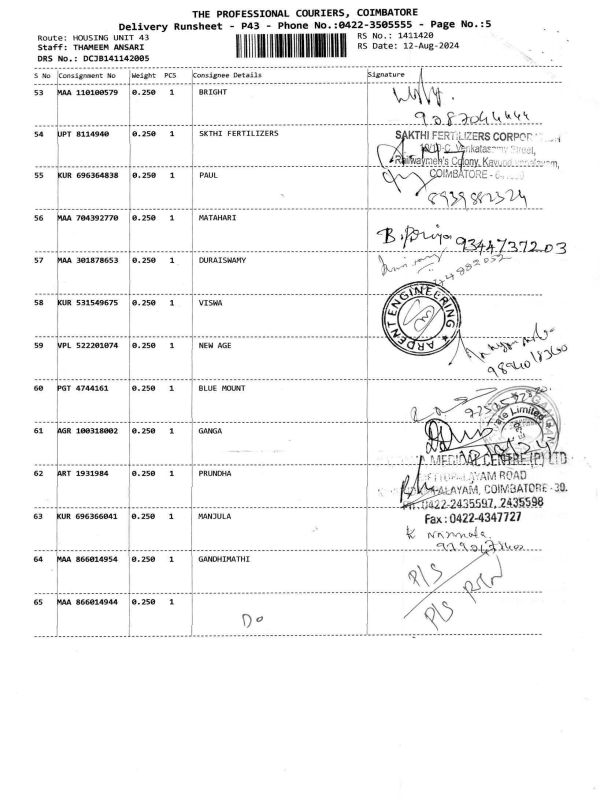 THE PROFESSIONAL COURIERS, COIMBATORE
Delivery Runsheet - P43 - Phone No.:0422-3505555 - Page No.:5
Route: HOUSING UNIT 43
RS No.: 1411420
Staff: THAMEEM ANSARI
RS Date: 12-Aug-2024
DRS No.: DCJB141142005
S No Consignment No Weight PCS Consignee Details Signature
53 MAA 110100579 0.250 1 BRIGHT
54 UPT 8114940 0.250 1 SKTHI FERTILIZERS
SAKTHI FERTILIZERS
Venkatasamy Street,
Railwaymen's Colony,
COIMBATORE -
55 KUR 696364838 0.250 1 PAUL
8939882324
56 MAA 704392770 0.250 1 MATAHARI
B. Priya 9344737203
57 MAA 301878653 0.250 1 DURAISWAMY
58 KUR 531549675 0.250 1 VISWA
ARDENT ENGINEERING
59 VPL 522201074 0.250 1 NEW AGE
60 PGT 4744161 0.250 1 BLUE MOUNT
Limited
61 AGR 100318002 0.250 1 GANGA
MEDICAL CENTRE (P) LTD
62 ART 1931984 0.250 1 PRUNDHA
ROAD
COIMBATORE - 30.
0422-2435597, 2435598
63 KUR 696366041 0.250 1 MANJULA
Fax : 0422-4347727
64 MAA 866014954 0.250 1 GANDHIMATHI
P/S
65 MAA 866014944 0.250 1
Do
P/S